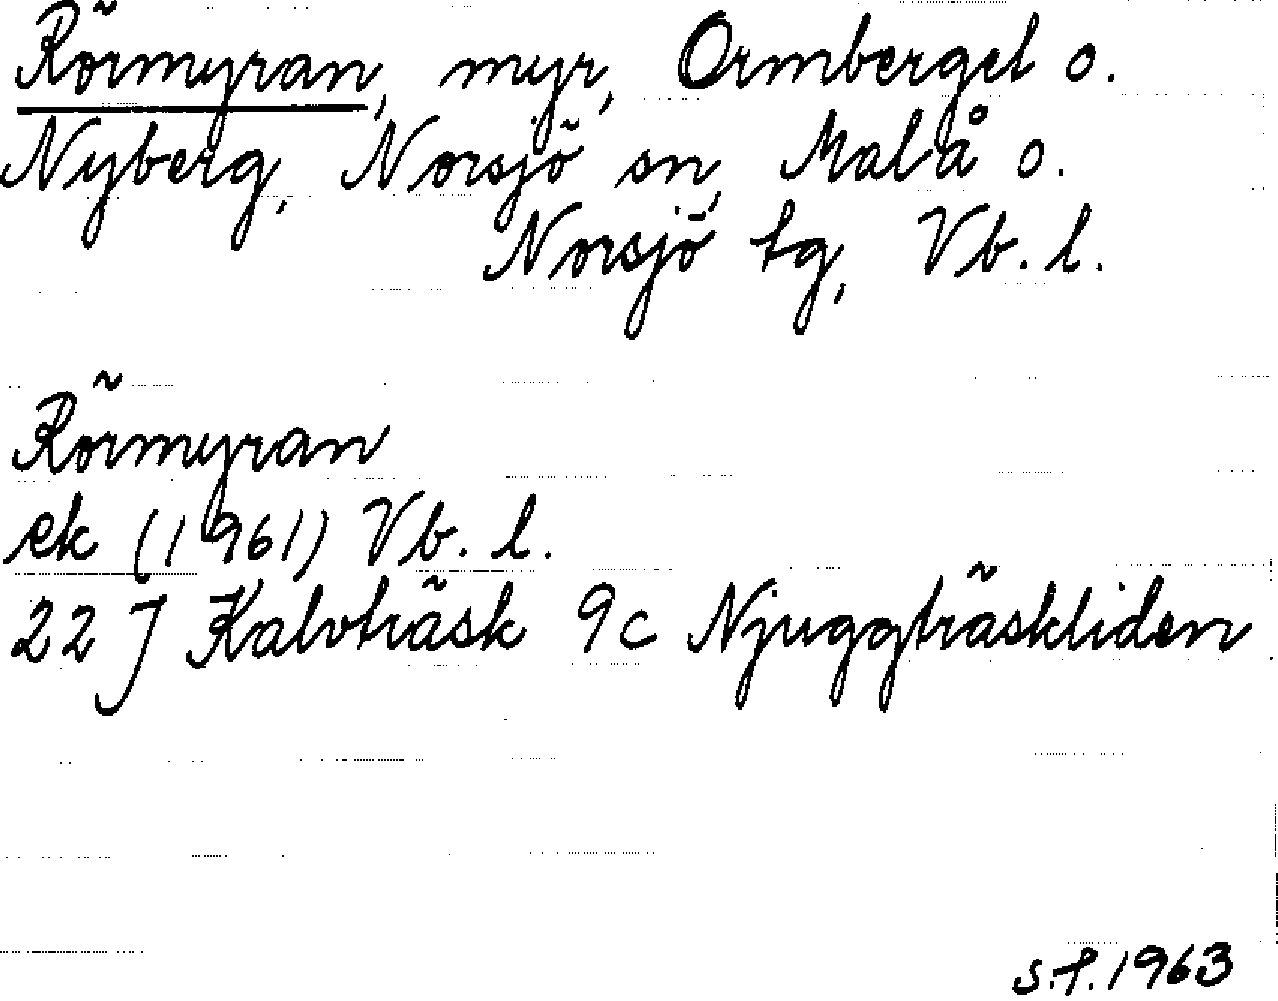 Rörmyran, myr, Ormberget o.
Nyberg, Norsjö sn, Malå o.
Norsjö tg, Vb. l.
Rörmyran
ek (1961) Vb. l.
22 J Kalvträsk 9c Njuggträskliden
s.f. 1963